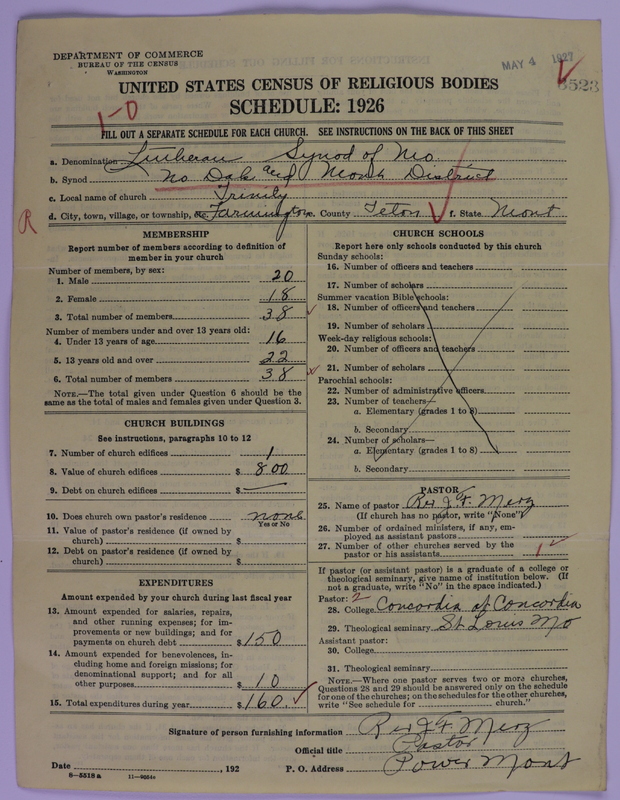 DEPARTMENT OF COMMERCE
BUREAU OF THE CENSUS
WASHINGTON
MAY 4 1927
UNITED STATES CENSUS OF RELIGIOUS BODIES
SCHEDULE: 1926
1-0
FILL OUT A SEPARATE SCHEDULE FOR EACH CHURCH. SEE INSTRUCTIONS ON THE BACK OF THIS SHEET
a. Denomination Lutheran Synod of Mo.
b. Synod No Dak and Mont District
c. Local name of church Trinity
R
d. City, town, village, or township, etc. Farmington e. County Teton f. State Mont
MEMBERSHIP
Report number of members according to definition of
member in your church
Number of members, by sex:
1. Male 20
2. Female 18
3. Total number of members 38
Number of members under and over 13 years old:
4. Under 13 years of age 16
5. 13 years old and over 22
6. Total number of members 38
NOTE.—The total given under Question 6 should be the
same as the total of males and females given under Question 3.
CHURCH BUILDINGS
See instructions, paragraphs 10 to 12
7. Number of church edifices 1
8. Value of church edifices $ 800
9. Debt on church edifices $ —
10. Does church own pastor's residence none
Yes or No
11. Value of pastor's residence (if owned by
church) $
12. Debt on pastor's residence (if owned by
church) $
EXPENDITURES
Amount expended by your church during last fiscal year
13. Amount expended for salaries, repairs,
and other running expenses; for im-
provements or new buildings; and for
payments on church debt $150
14. Amount expended for benevolences, in-
cluding home and foreign missions; for
denominational support; and for all
other purposes $ 10
15. Total expenditures during year $160.
CHURCH SCHOOLS
Report here only schools conducted by this church
Sunday schools:
16. Number of officers and teachers
17. Number of scholars
Summer vacation Bible schools:
18. Number of officers and teachers
19. Number of scholars
Week-day religious schools:
20. Number of officers and teachers
21. Number of scholars
Parochial schools:
22. Number of administrative officers
23. Number of teachers—
a. Elementary (grades 1 to 8)
b. Secondary
24. Number of scholars—
a. Elementary (grades 1 to 8)
b. Secondary
PASTOR
25. Name of pastor Rev J. F. Merz
(If church has no pastor, write "None")
26. Number of ordained ministers, if any, em-
ployed as assistant pastors
27. Number of other churches served by the
pastor or his assistants 1
If pastor (or assistant pastor) is a graduate of a college or
theological seminary, give name of institution below. (If
not a graduate, write "No" in the space indicated.)
Pastor: 2
28. College Concordia of Concordia
29. Theological seminary St. Louis Mo
Assistant pastor:
30. College
31. Theological seminary
NOTE.—Where one pastor serves two or more churches,
Questions 28 and 29 should be answered only on the schedule
for one of the churches; on the schedules for the other churches,
write "See schedule for church."
Signature of person furnishing information Rev J F Merz
Official title Pastor
Date , 192 P. O. Address Power Mont
8—5518 a